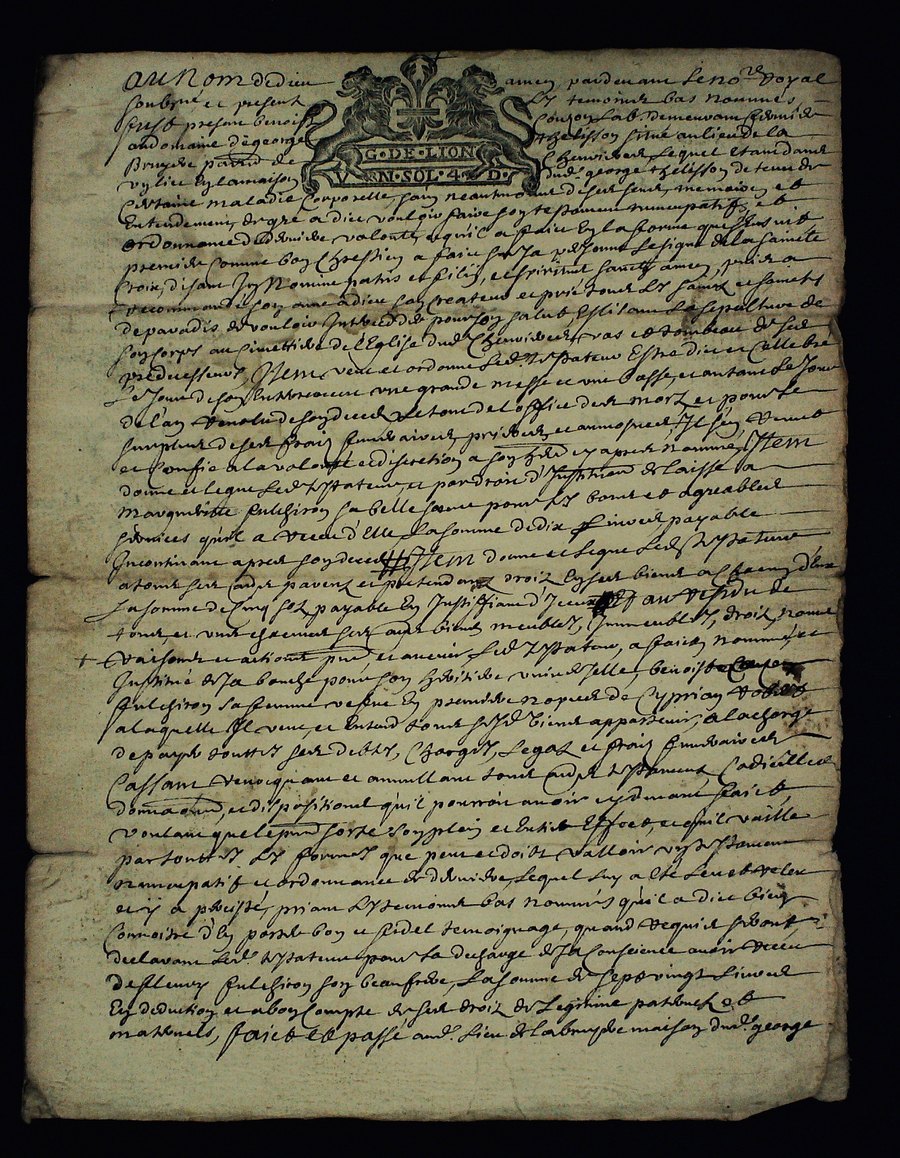 au nom de dieu amen pardevant le no.re Royal
soubsigné et present Les temoins bas nommés
feust present benoist demeurant
au domaine de george thelisson situe au lieu de la
Bruyere parroisse de lequel etant dans
un lict en la maison dud. george thelisson detenu de
Certaine maladie Corporelle, sain neantmoins de ses sens, memoire, et
Entendement, de gre a dict vouloir faire son testament nuncupatif, et
ordonnance de derniere volonté, et qu'il a faict En la forme que s'ensuit
premiere Comme bon Chrestien a faict sur sa personne Le signe de la saincte
Croix, disant In Nomine patris et filii, et spiritus sancti amen, puis a
recommandé son ame a dieu son Createur et prié tous Les saincts et sainctes
de paradis de vouloir Interceder pour son salut Eslisant La sepulture de
son corps au Cimettiere de l'Eglise dud. vas et tombeau de ses
predecesseurs, Item veut et ordonne Led. testateur Estre dict et Cellebré
Le Jour de son Enterrement une grande messe et une basse, et autant Le Jour
de l'an revolu de son deces, Le tout de l'office des morts et pour le
surplus de ses frais funeraires, prieres, et aumosnes Il s'en remet
et confie a la volonté et discretion a son her. cy apres nommé, Item
donne et legue Led. testateur, et par droit d'Institution delaisse a
Marguerite fulchiron sa belle soeur pour Les bons et agreables
services qu'il a receu d'Elle La somme de dix Livres payable
Incontinant apres son deces Item donne et Legue Led. testateur
a tous ses autres parents et pretendants droit En ses biens a chacun d'Eux
La somme de Cinq sols payable En Justiffiant d'Iceux Et au residu de
tous, et uns chacuns ses autres biens meubles, Immeubles, droits, noms
+ raisons et actions pnt, et avenir Led. testateur, a faict, nommé, et
Institué de sa bouche pour son heritiere universelle, benoiste
fulchiron sa femme vefve En premieres nopces de Cyprian
a laquelle Il veut, et Entend tous sesd. biens appartenir, a la charge
de payer touttes ses debtes, Charges, Legats et frais funeraires
Cassant revocquant et annullant tous autres testaments Codicilles
donnaons, et dispositions qu'il pourroit avoir cy devant faicts
voulant que le pnt sorte son plein et Entier Effect, et qu'il vaille
par touttes Les formes que peut et doibt valloir un testament
nuncupatif et ordonnance de derniere, Lequel Luy a eté Leu et releu
et y a persisté, priant Les temoins bas nommés qu'il a dict bien
Connoistre d'En porter bon et fidel temoignage, quand requis seront,
declarant Led. testateur pour La decharge de sa Conscience avoir receu
de fleury fulchiron son beau frere, La somme de sept vingt Livres
En deduction et a bon Compte de ses droits de Legitime paternels et
maternels, faict et passé aud. Lieu de la bruyere maison dud. george
G·DE·LION
V RM·SOL·4 D·